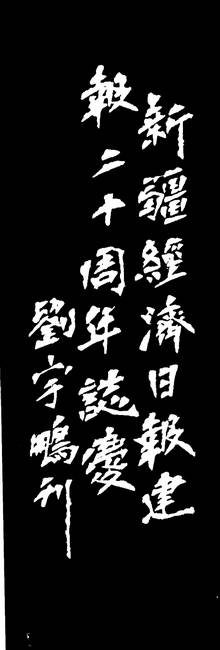 新疆經濟日報建
報二十周年誌慶
劉宇鵬刊